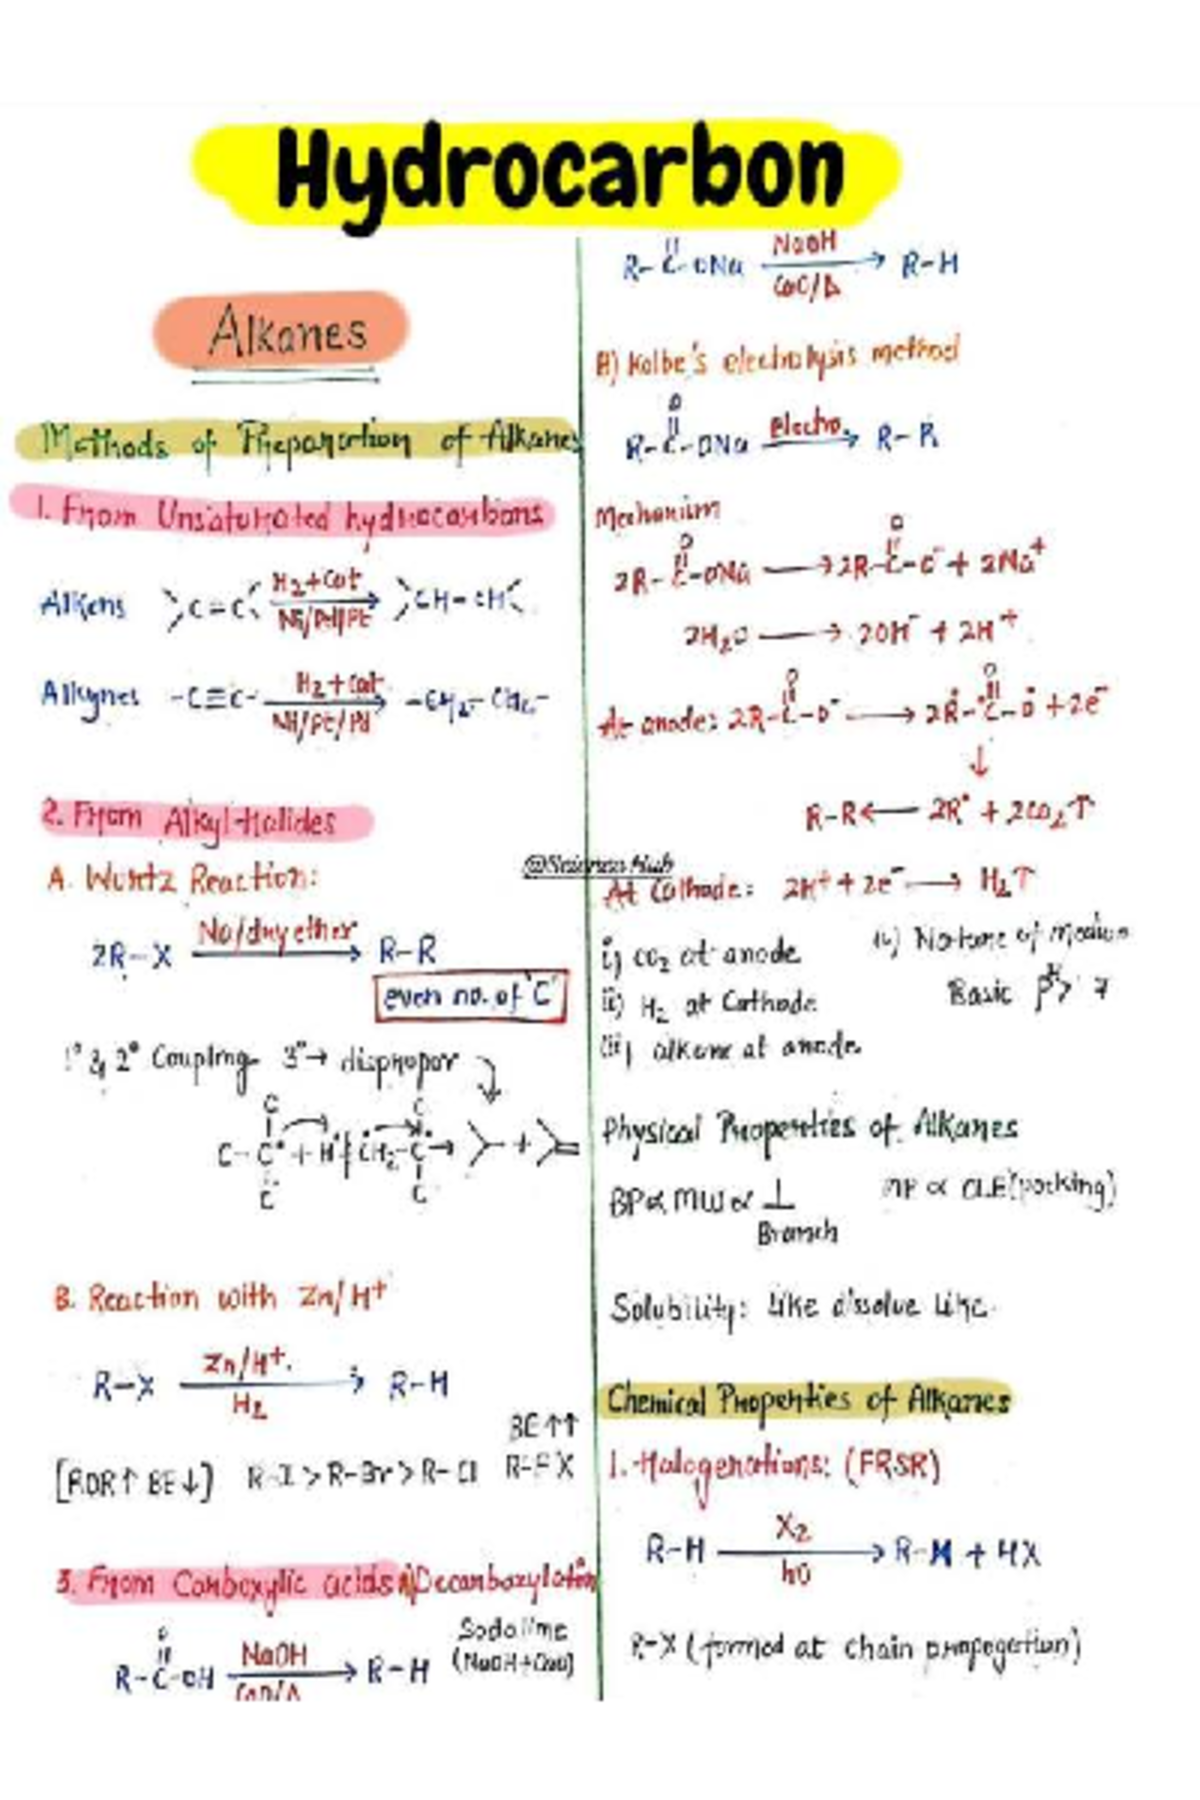 Hydrocarbon
Alkanes
Methods of Preparation of Alkanes
1. From Unsaturated hydrocarbons
Alkens >C=C< H₂+Cat Ni/Pd/Pt → >CH-CH<
Alkynes -C≡C- H₂+Cat Ni/Pt/Pd → -CH₂-CH₂-
2. From Alkyl Halides
A. Wurtz Reaction:
2R-X Na/dry ether → R-R
even no. of 'C'
1° & 2° Coupling 3°→ dispropor
C C
C-C• + H CH₂-C → +
C C
B. Reaction with Zn/H⁺
R-X Zn/H⁺ H₂ → R-H
BE↑↑
[ROR↑ BE↓] R-I > R-Br > R-Cl R-F X
3. From Carboxylic acids Decarboxylation
O
R-C-OH NaOH CaO/Δ → R-H
Sodalime
(NaOH+CaO)
R-C-ONa NaOH CaO/Δ → R-H
B) Kolbe's electrolysis method
O
R-C-ONa Electro. → R-R
Mechanism
2R-C-ONa → 2R-C-O⁻ + 2Na⁺
2H₂O → 2OH⁻ + 2H⁺
At anode: 2R-C-O⁻ → 2R-C-O + 2e⁻
↓
R-R ← 2R• + 2CO₂↑
@Science Hub
At Cathode: 2H⁺ + 2e⁻ → H₂↑
i) CO₂ at anode
iv) Nature of Medium
ii) H₂ at Cathode
Basic pH > 7
iii) alkane at anode
Physical Properties of Alkanes
BP ∝ MW ∝ 1/Branch
MP ∝ CLE (packing)
Solubility: Like dissolve Like
Chemical Properties of Alkanes
1. Halogenations: (FRSR)
R-H X₂ hυ → R-X + HX
R-X (formed at chain propogertion)